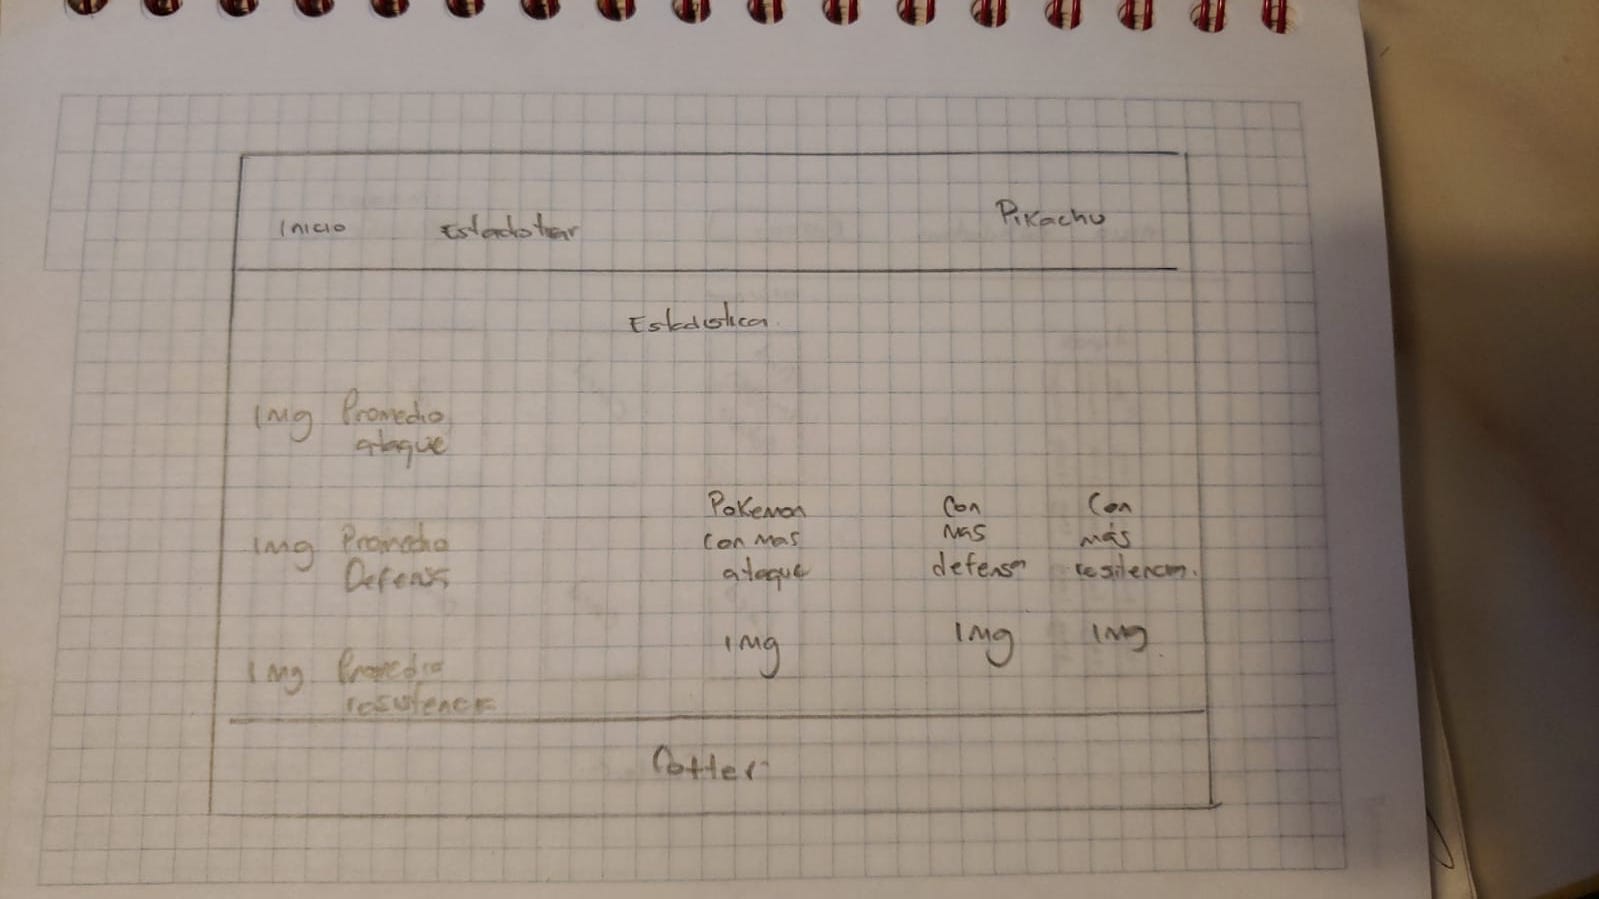 Inicio
Pikachu
Estadistica.
IMg Promedio
ataque
IMg Promedio
Defensa
IMg Promedio
resistencia
Pokemon
con mas
ataque
IMg
Con
Mas
defensa
IMg
Con
más
IMg